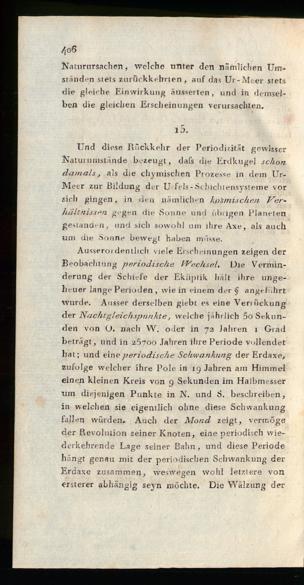 406
Naturursachen, welche unter den nämlichen Um-
ständen stets zurückkehrten, auf das Ur-Meer stets
die gleiche Einwirkung äusserten, und in demsel-
ben die gleichen Erscheinungen verursachten.
15.
Und diese Rückkehr der Periodizität gewisser
Naturumstände bezeugt, daſs die Erdkugel schon
damals, als die chymischen Prozesse in dem Ur-
Meer zur Bildung der Urfels-Schichtensysteme vor
sich gingen, in den nämlichen kosmischen Ver-
hältnissen gegen die Sonne und übrigen Planeten
gestanden, und sich sowohl um ihre Axe, als auch
um die Sonne bewegt haben müsse.
Ausserordentlich viele Erscheinungen zeigen der
Beobachtung periodische Wechsel. Die Vermin-
derung der Schiefe der Ekliptik hält ihre unge-
heuer lange Perioden, wie in einem der § angeführt
wurde. Ausser derselben giebt es eine Verrückung
der Nachtgleichspunkte, welche jährlich 50 Sekun-
den von O. nach W. oder in 72 Jahren 1 Grad
beträgt, und in 25700 Jahren ihre Periode vollendet
hat; und eine periodische Schwankung der Erdaxe,
zufolge welcher ihre Pole in 19 Jahren am Himmel
einen kleinen Kreis von 9 Sekunden im Halbmesser
um diejenigen Punkte in N. und S. beschreiben,
in welchen sie eigentlich ohne diese Schwankung
fallen würden. Auch der Mond zeigt, vermöge
der Revolution seiner Knoten, eine periodisch wie-
derkehrende Lage seiner Bahn, und diese Periode
hängt genau mit der periodischen Schwankung der
Erdaxe zusammen, weswegen wohl letztere von
ersterer abhängig seyn möchte. Die Wälzung der